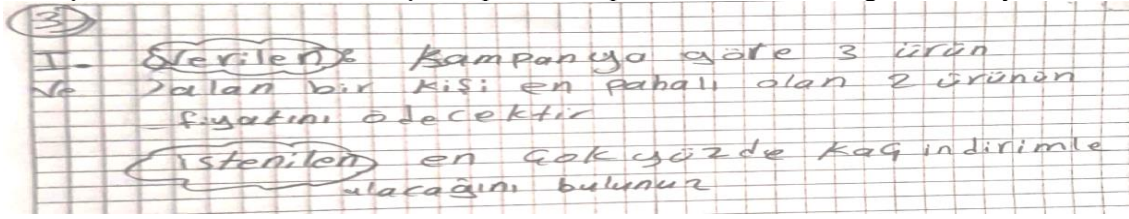 3
I- Verilen: Kampanya göre 3 ürün
Ve alan bir kişi en pahalı olan 2 ürünün
fiyatını ödecektir
İstenilen en çok yüzde kaç indirimle
alacağını bulunuz